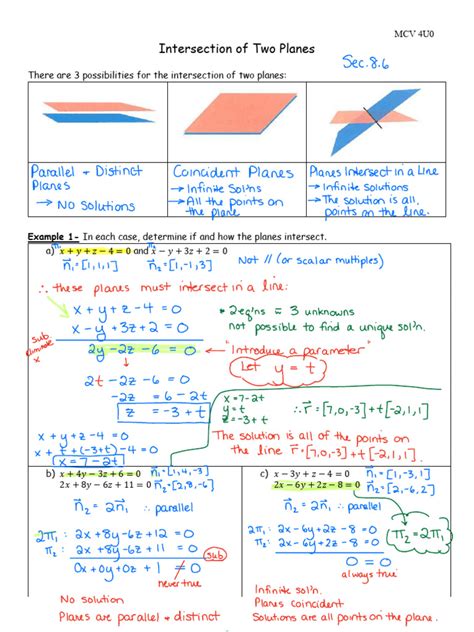 MCV 4U0
Intersection of Two Planes
Sec. 8.6
There are 3 possibilities for the intersection of two planes:
Parallel + Distinct Planes
→ No Solutions
Coincident Planes
→ Infinite Sol'ns
→ All the points on the plane.
Planes Intersect in a Line
→ Infinite Solutions
→ The solution is all points on the line.
Example 1- In each case, determine if and how the planes intersect.
a) x + y + z − 4 = 0 and x − y + 3z + 2 = 0
n⃗₁ = [1,1,1] n⃗₂ = [1,-1,3] Not // (or scalar multiples)
∴ these planes must intersect in a line:
x + y + z - 4 = 0
x - y + 3z + 2 = 0
sub
eliminate
x
2y - 2z - 6 = 0
* 2 eq'ns = 3 unknowns
not possible to find a unique sol'n.
← "Introduce a parameter"
Let y = t
2t - 2z - 6 = 0
-2z = 6 - 2t
z = -3 + t
x = 7-2t
y = t
z = -3 + t
∴ r⃗ = [7,0,-3] + t[-2,1,1]
x + y + z - 4 = 0
x + t + (-3+t) - 4 = 0
x = 7 - 2t
The solution is all of the points on
the line r⃗ = [7,0,-3] + t[-2,1,1]
b) x + 4y − 3z + 6 = 0 n⃗₁ = [1,4,-3]
2x + 8y − 6z + 11 = 0 n⃗₂ = [2,8,-6]
n⃗₂ = 2n⃗₁ ∴ parallel
2π₁ : 2x + 8y - 6z + 12 = 0
π₂ : 2x + 8y - 6z + 11 = 0
sub
0x + 0y + 0z + 1 = 0
never true
No solution
Planes are parallel + distinct
c) x − 3y + z − 4 = 0 n⃗₁ = [1,-3,1]
2x − 6y + 2z − 8 = 0 n⃗₂ = [2,-6,2]
n⃗₂ = 2n⃗₁ ∴ parallel
2π₁ : 2x - 6y + 2z - 8 = 0
π₂ : 2x - 6y + 2z - 8 = 0
π₂ = 2π₁
0 = 0
always true
Infinite sol'n.
Planes coincident
Solutions are all points on the plane.